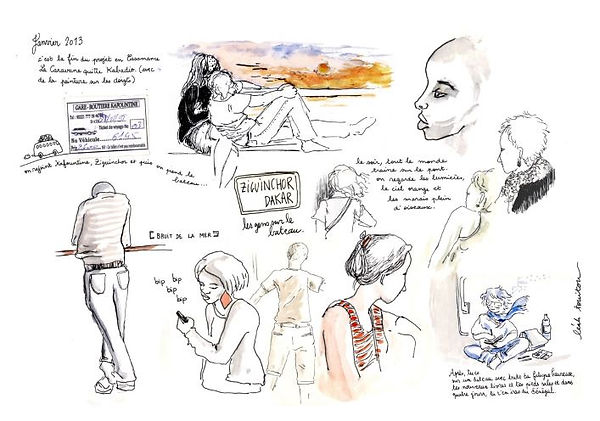 Janvier 2013
c'est la fin du projet en Casamance
La Caravane quitte Kabadio (avec
de la peinture sur les doigts)
GARE-ROUTIERE KAFOUNTINE
Ticket de voyage
No Véhicule
on rejoint Kafountine, Ziguinchor et puis on prend le
bateau...
ZIGUINCHOR
DAKAR
les gens sur le
bateau.
[BRUIT DE LA MER]
bip
bip
bip
bip
le soir, tout le monde
traine sur le pont.
on regarde les lumières,
le ciel orange et
les marais plein
d'oiseaux.
Après, Luce
sur un bateau avec toute sa
les nouveaux livres et les pieds sales et dans
quatre jours, là
Sénégal.